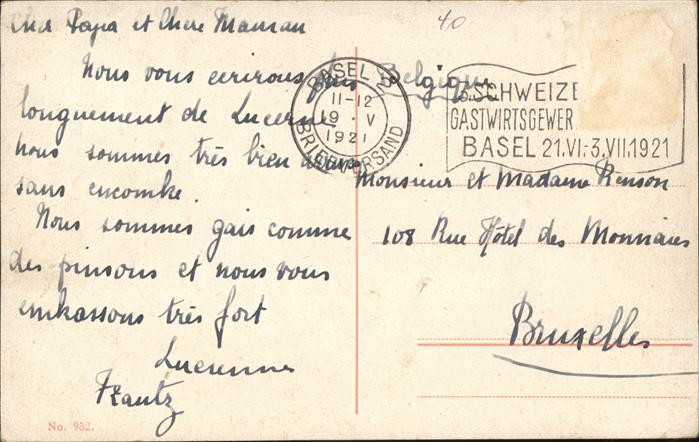 Cher Papa et Chère Maman
Nous vous écrirons plus
longuement de Lucerne
nous sommes très bien
sans encombre.
Nous sommes gais comme
des pinsons et nous vous
embrassons très fort
Lucienne
Frantz
No. 952.
40
BASEL 2
11-12
19. V
1921
BRIEFVERSAND
Belgique
3.SCHWEIZE
GASTWIRTSGEWER
BASEL 21.VI.-3.VII.1921
Monsieur et Madame Renson
108 Rue Hôtel des Monnaies
Bruxelles